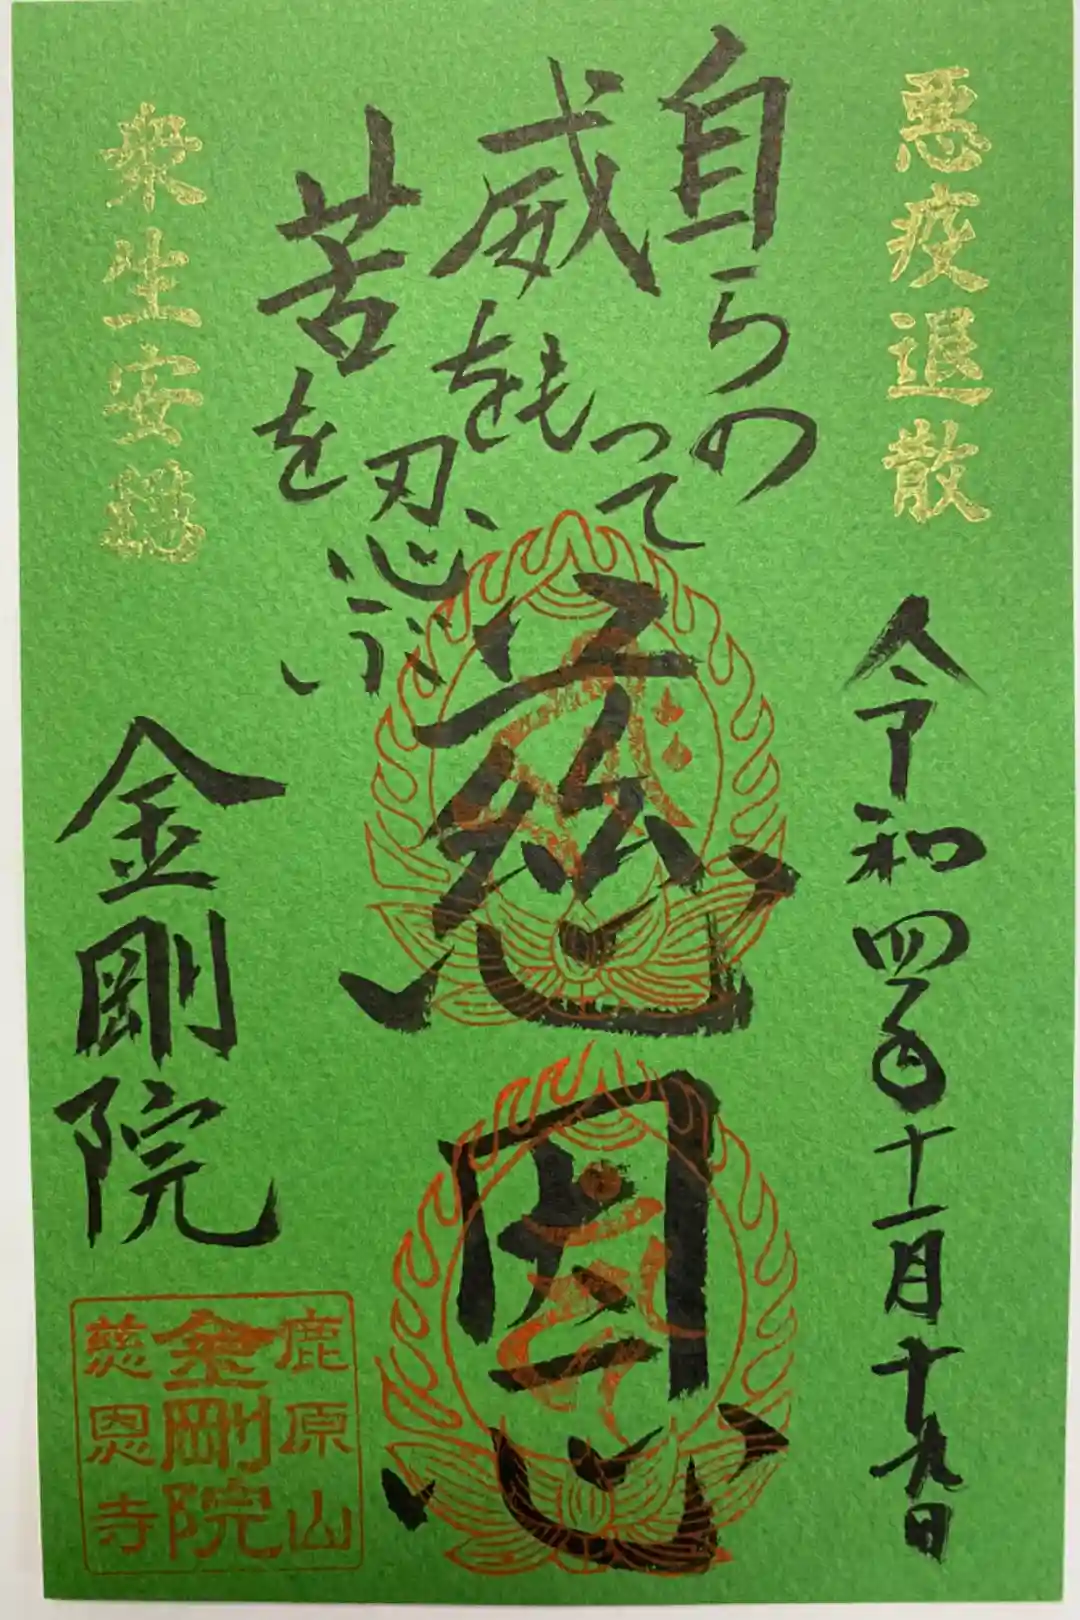 悪疫退散
令和四年十一月十九日
自らの
威をもって
苦を忍ぶ
慈恩
衆生安穏
金剛院
鹿原山
金剛院
慈恩寺